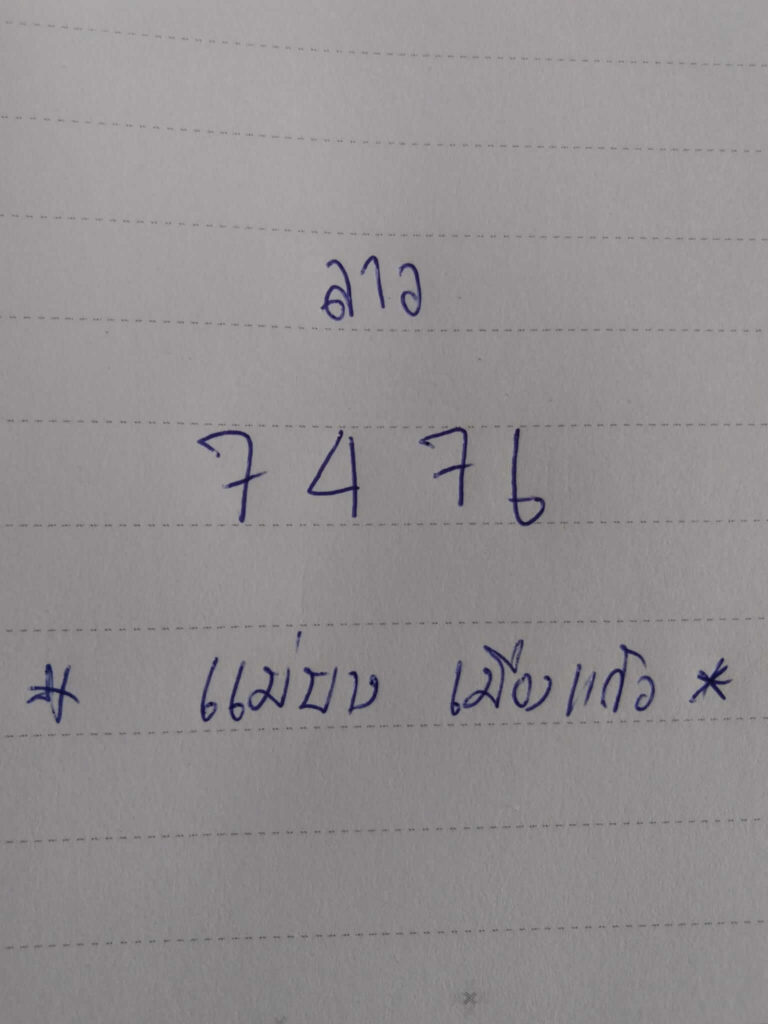 ลาว
7 4 7 6
* แม่ยง เมืองแก้ว *